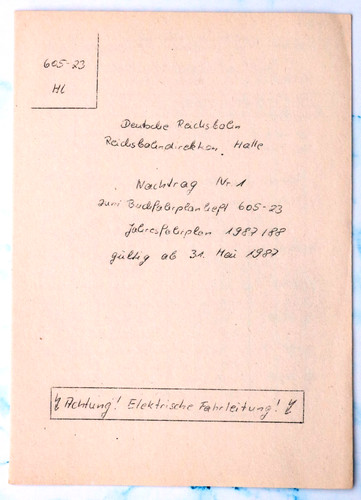 605-23
Hl
Deutsche Reichsbahn
Reichsbahndirektion Halle
Nachtrag Nr 1
zum Buchfahrplanheft 605-23
Jahresfahrplan 1987/88
gültig ab 31. Mai 1987
Achtung! Elektrische Fahrleitung!